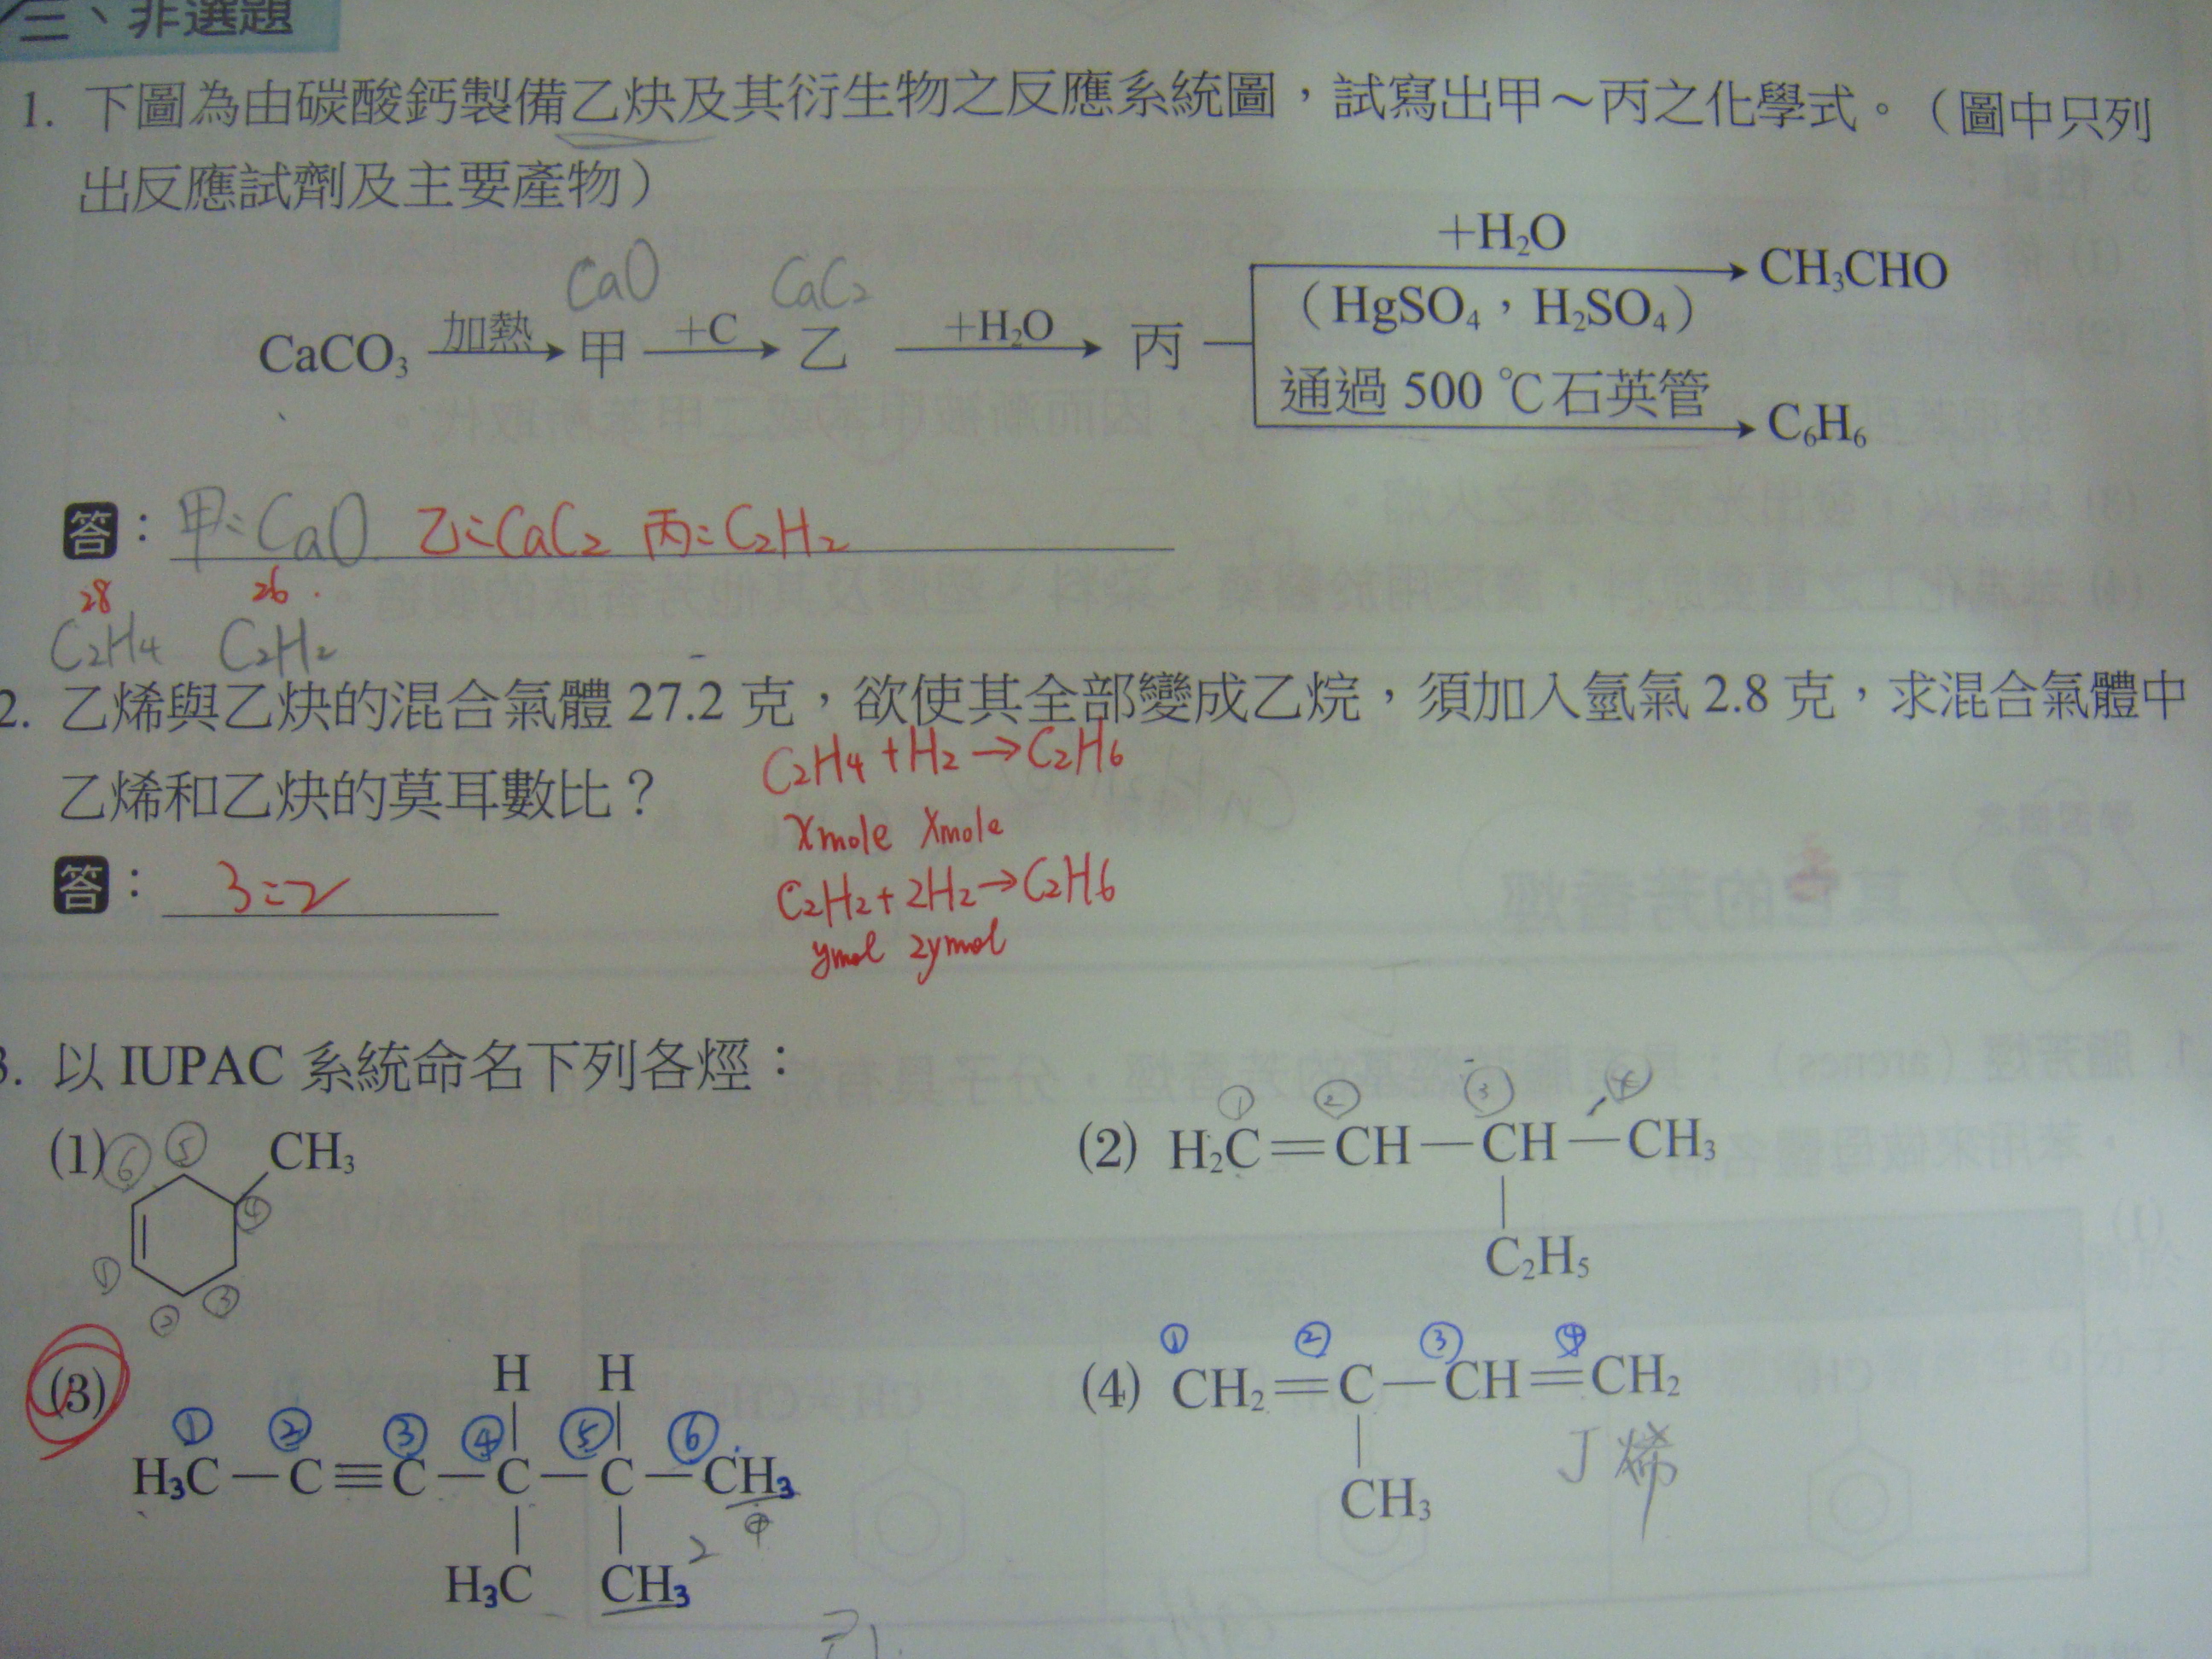 三、非選題
1. 下圖為由碳酸鈣製備乙炔及其衍生物之反應系統圖，試寫出甲～丙之化學式。（圖中只列
出反應試劑及主要產物）
CaO CaC₂
CaCO₃ 加熱 甲 +C 乙 +H₂O 丙
+H₂O
（HgSO₄，H₂SO₄）
CH₃CHO
通過 500 ℃石英管
C₆H₆
答：甲：CaO 乙：CaC₂ 丙：C₂H₂
28 26
C₂H₄ C₂H₂
2. 乙烯與乙炔的混合氣體 27.2 克，欲使其全部變成乙烷，須加入氫氣 2.8 克，求混合氣體中
乙烯和乙炔的莫耳數比？
答：3：2
C₂H₄ + H₂ → C₂H₆
xmole xmole
C₂H₂ + 2H₂ → C₂H₆
ymol 2ymol
3. 以 IUPAC 系統命名下列各烴：
(1) ⑥ ⑤ CH₃
④
① ② ③
(2) ① ② ③ 4
H₂C＝CH—CH—CH₃
C₂H₅
(3) H H
① ② ③ ④ ⑤ ⑥
H₃C—C≡C—C—C—CH₃
H₃C CH₃ 2
(4) ① ② ③ ④
CH₂＝C—CH＝CH₂
CH₃
丁烯